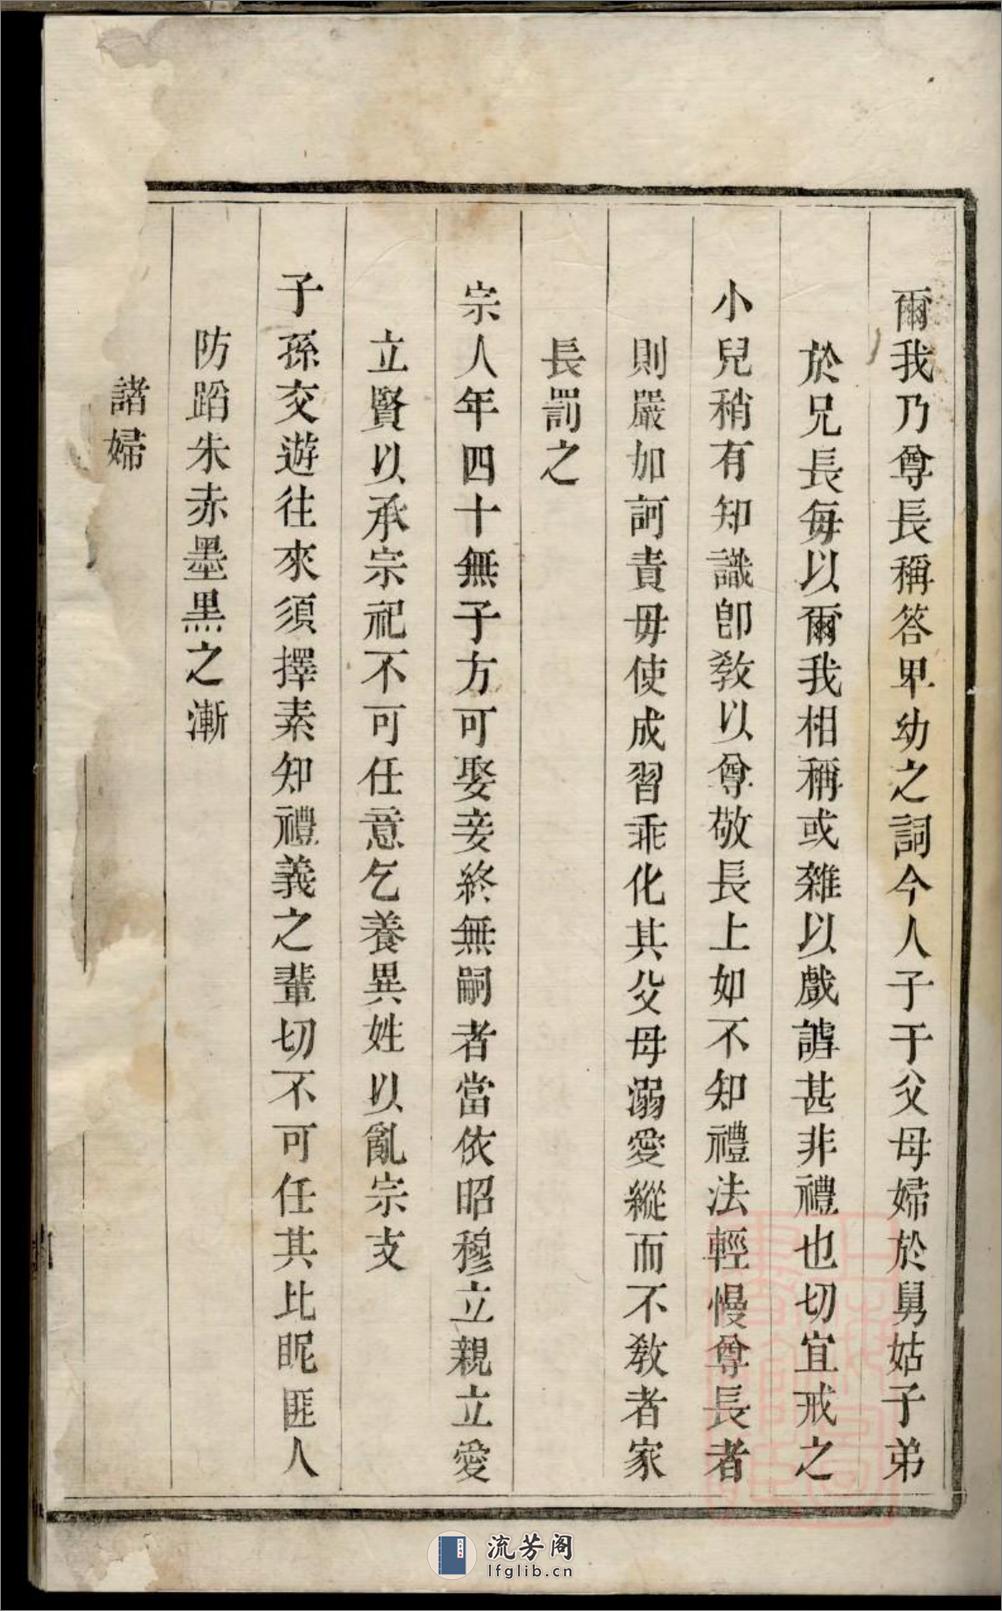 爾我乃尊長稱答卑幼之詞今人子于父母婦於舅姑子弟
於兄長每以爾我相稱或雜以戲謔甚非禮也切宜戒之
小兒稍有知識卽敎以尊敬長上如不知禮法輕慢尊長者
則嚴加訶責毋使成習乖化其父母溺愛縱而不敎者家
長罰之
宗人年四十無子方可娶妾終無嗣者當依昭穆立親立愛
立賢以承宗祀不可任意乞養異姓以亂宗支
子孫交遊往來須擇素知禮義之輩切不可任其比昵匪人
防蹈朱赤墨黑之漸
諸婦
流芳阁
lfglib.cn